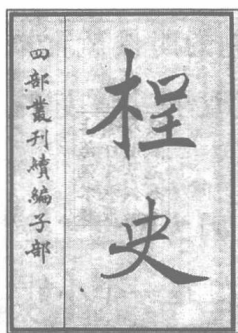 桯史
四部叢刊續編子部